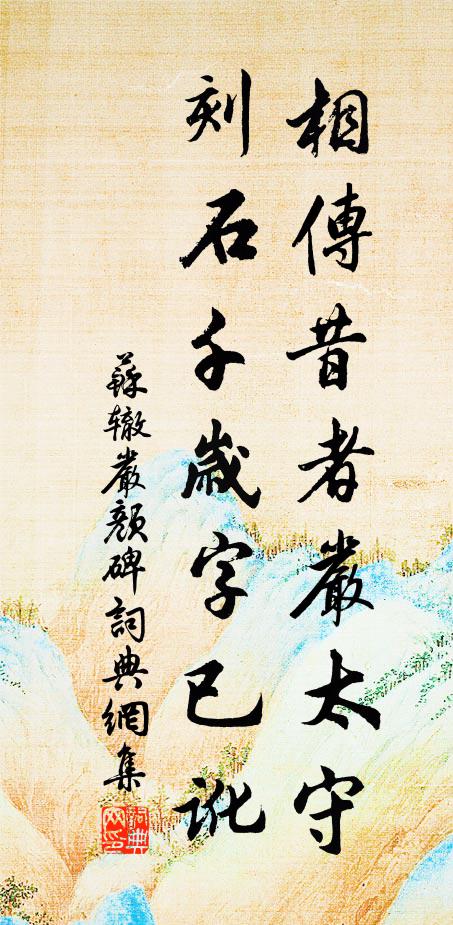 相傳昔者嚴太守
刻石千歲字已訛
蘇辙嚴顏碑詞典網集